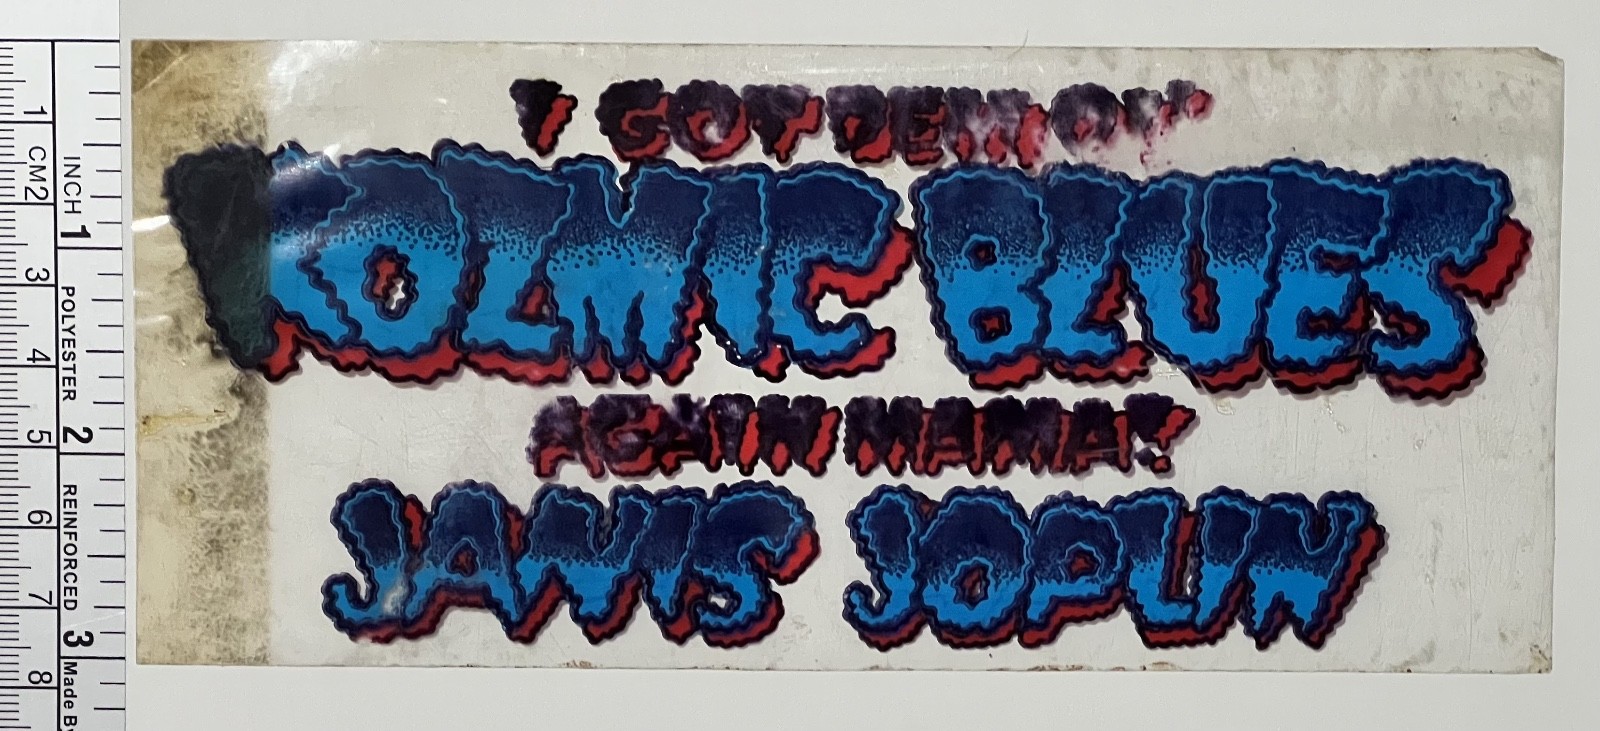 I GOT DEM OL'
KOZMIC BLUES
AGAIN MAMA!
JANIS JOPLIN
1 CM 2 3 4 5 6 7 8
INCH 1 POLYESTER 2 REINFORCED 3 Made By